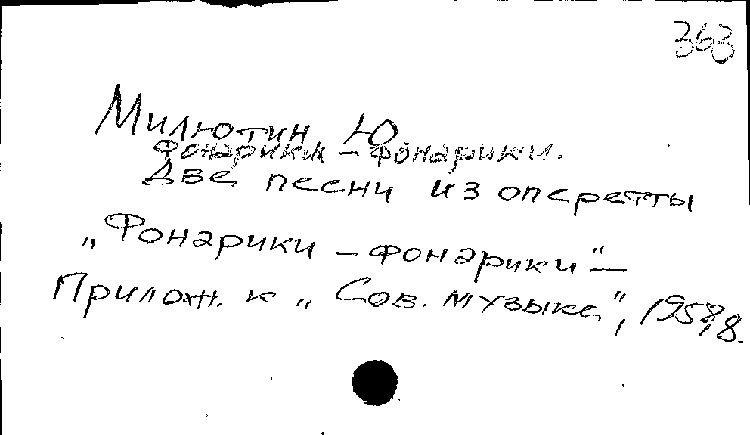 363
Милютин Ю
Фонарики – фонарики.
Две песни из оперетты
„Фонарики – фонарики" –
Прилож. к „Сов. музыке", 1958, 8.